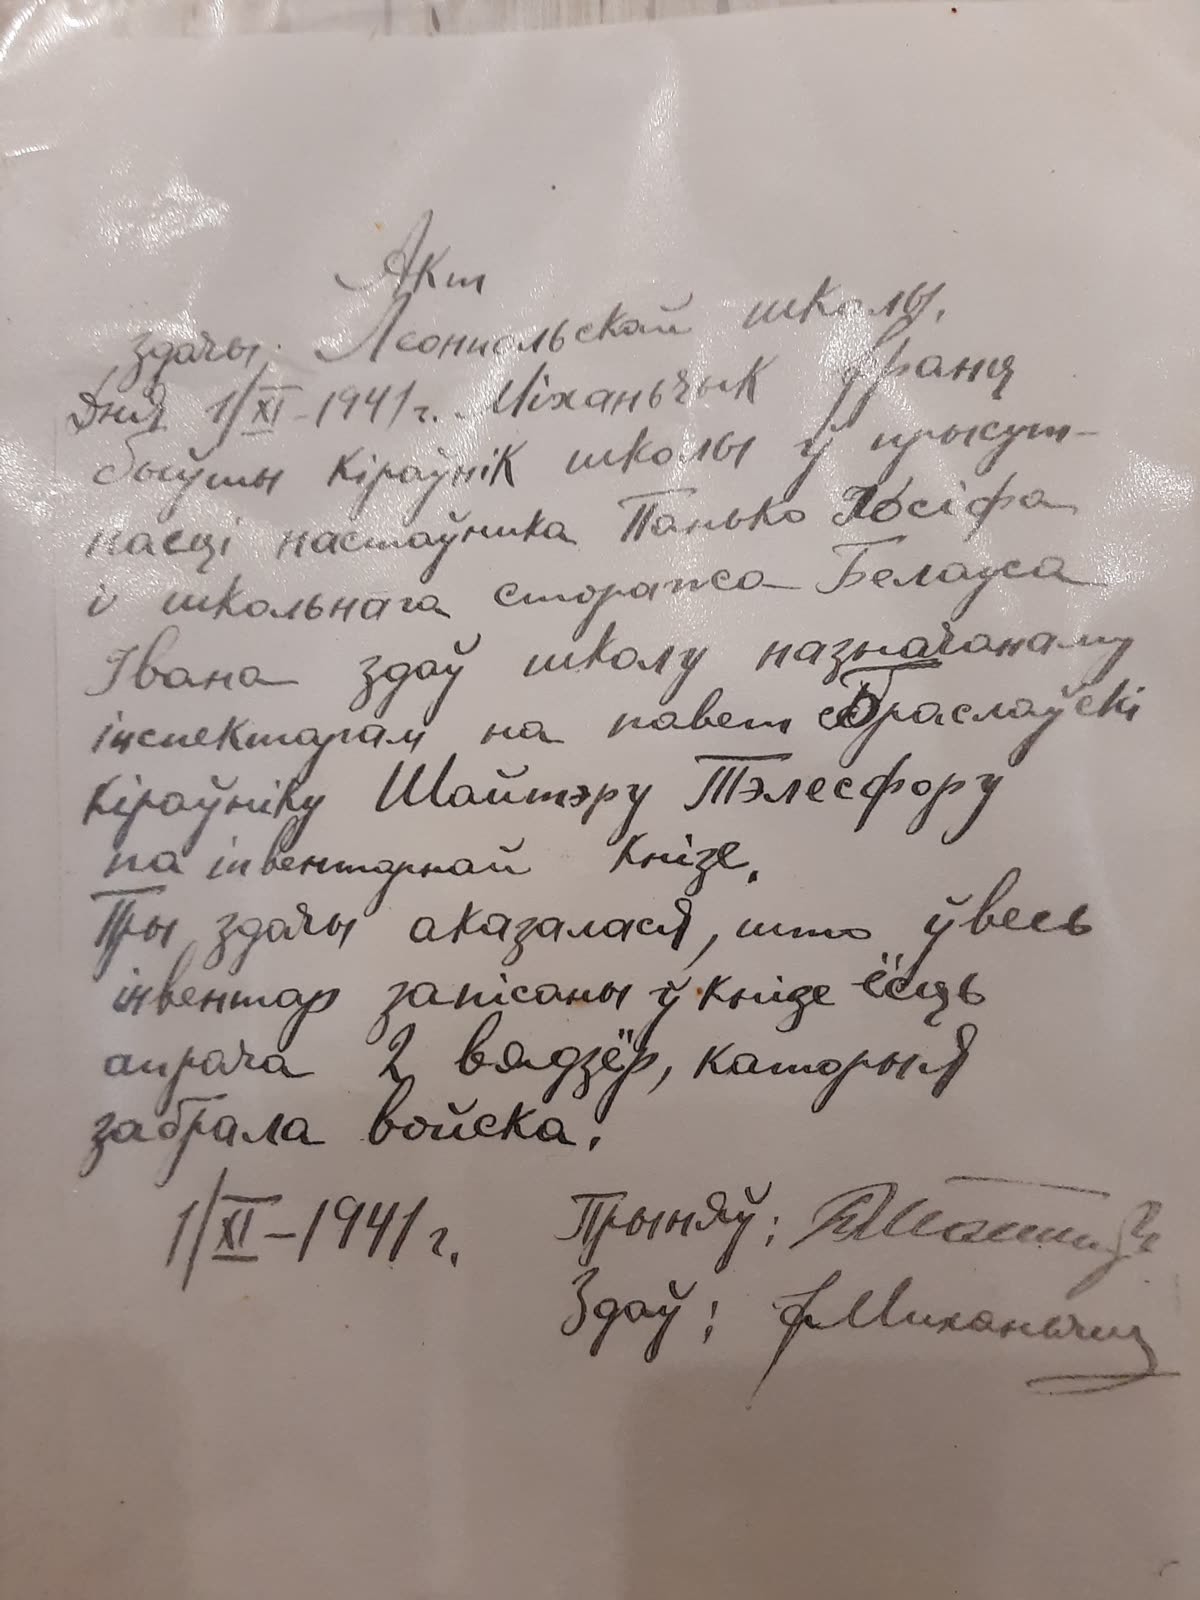 Акт
здачы Леонпольскай школы.
Дня 1/XI-1941 г. Міханьчык Франц
быўшы кіраўнік школы ў прысут-
насці настаўніка Панько Юосіфа
і школьнага стоража Белавуса
Івана здаў школу назначанаму
інспектарам на павет Браслаўскі
кіраўніку Шайтэру Тэлесфору
па інвентарнай кнізе.
Пры здачы аказалася, што ўвесь
інвентар запісаны ў кнізе ёсць
апрача 2 вядзёр, каторыя
забрала войска.
1/XI-1941 г. Прыняў:
Здаў: